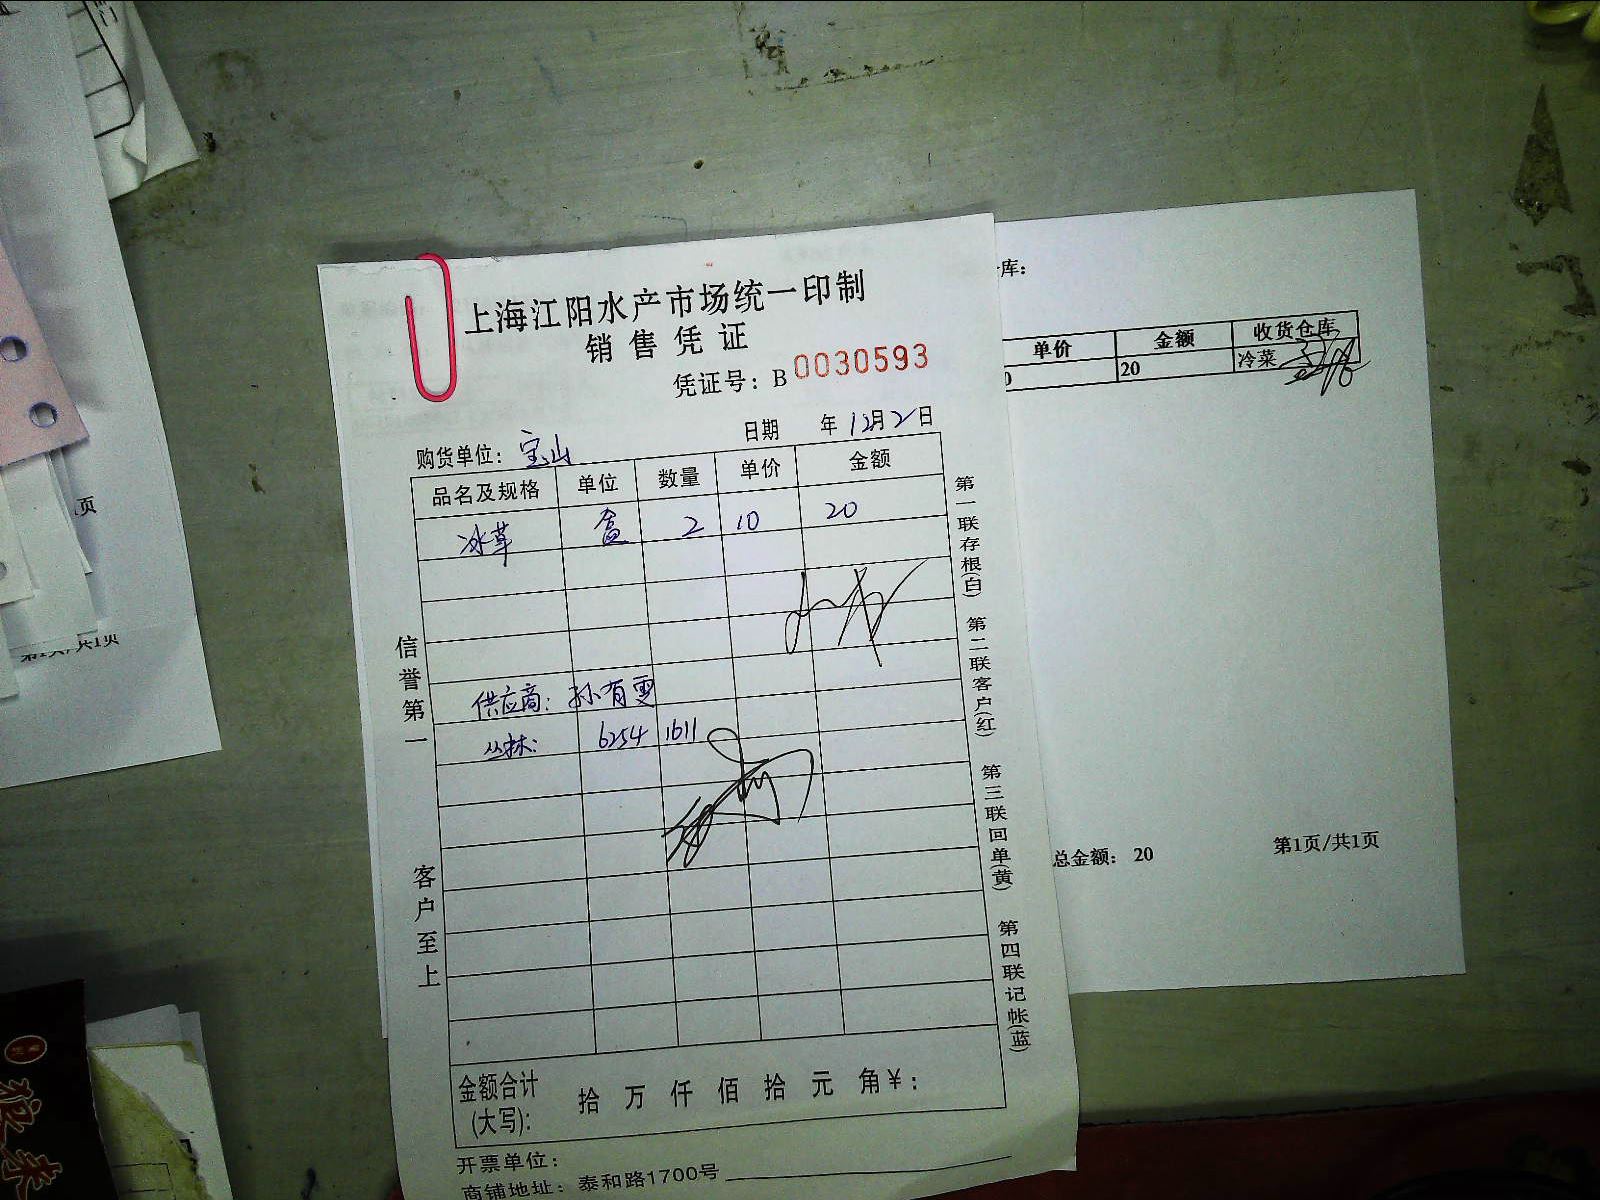 上海江阳水产市场统一印制
销售凭证
凭证号：B 0030593
购货单位：宝山 日期 年12月2日
品名及规格 单位 数量 单价 金额
冰草 盒 2 10 20
供应商：孙有雯
丛林： 6254 1611
信誉第一
客户至上
第一联存根(白)
第二联客户(红)
第三联回单(黄)
第四联记帐(蓝)
金额合计 拾 万 仟 佰 拾 元 角 ¥：
(大写)：
开票单位：
商铺地址：泰和路1700号
库：
单价 金额 收货仓库
20 冷菜
总金额： 20 第1页/共1页
页
第1页/共1页